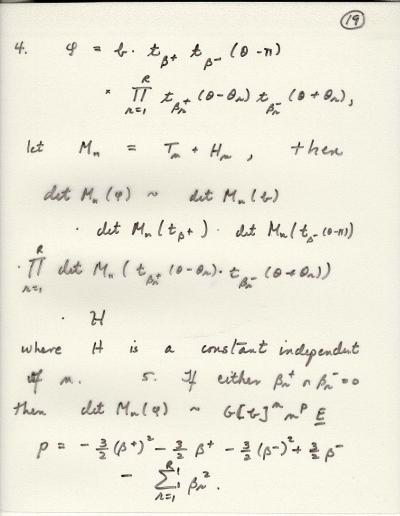 19
4. φ = b · t_{β+} t_{β-} (θ-π)
× ∏_{r=1}^{R} t_{β_r^+} (θ-θ_r) t_{β_r^-} (θ+θ_r),
let M_n = T_n + H_n, then
det M_n (φ) ~ det M_n (b)
· det M_n (t_{β+}) · det M_n (t_{β-(θ-π)})
· ∏_{r=1}^{R} det M_n ( t_{β_r^+} (θ-θ_r) · t_{β_r^-} (θ+θ_r))
· H
where H is a constant independent
of n. 5. If either β_r^+ or β_r^- = 0
then det M_n(φ) ~ G[b]^n n^p E
p = - 3/2 (β^+)^2 - 3/2 β^+ - 3/2 (β^-)^2 + 3/2 β^-
- ∑_{r=1}^{R} β_r^2.